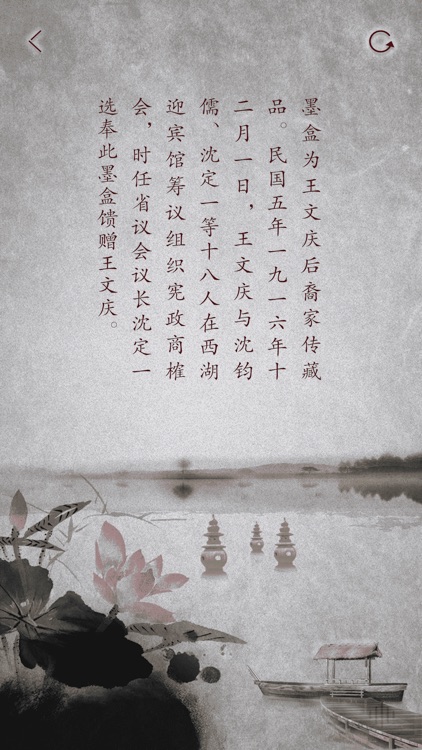 墨盒为王文庆后裔家传藏
品。民国五年一九一六年十
二月一日，王文庆与沈钧
儒、沈定一等十八人在西湖
迎宾馆筹议组织宪政商榷
会，时任省议会议长沈定一
选奉此墨盒馈赠王文庆。